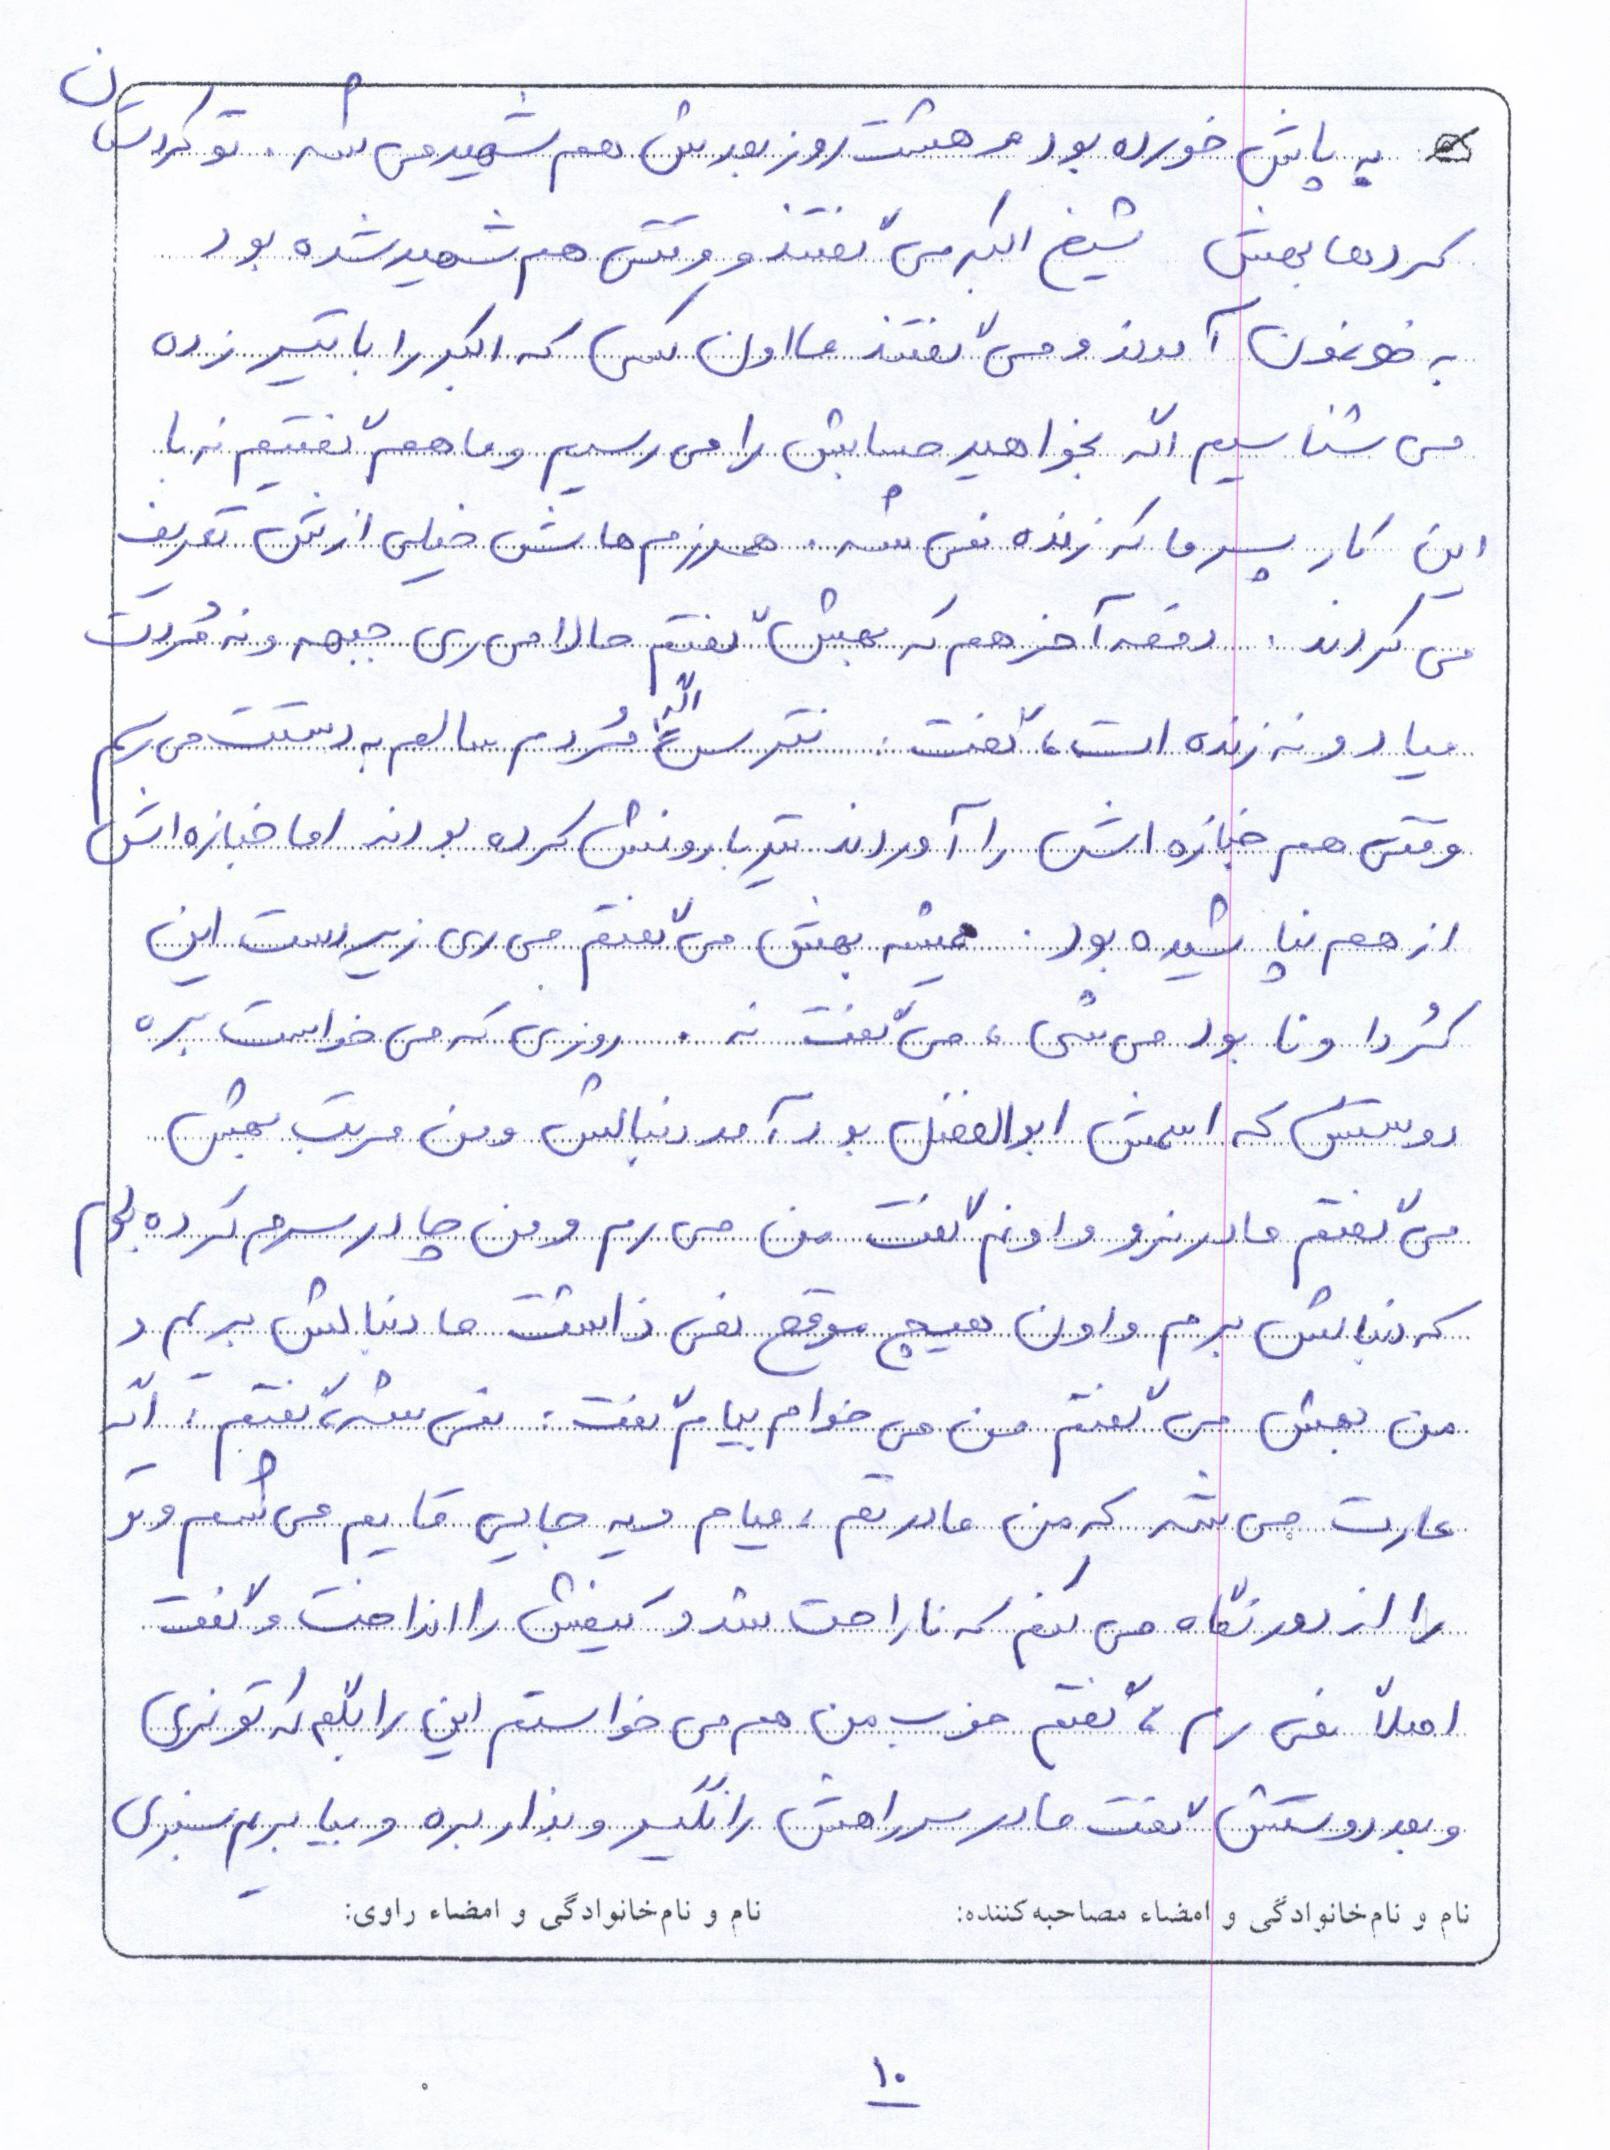 به پاش خورده بود و هشت روز بعدش هم شهید می شه. تو کردستان
کردها بهش شیخ اکبر می گفتند و وقتی هم شهید شده بود
به خونمون آمدند و می گفتند ما اون کسی که اکبر را با تیر زده
می شناسیم اگه بخواهید حسابش را می رسیم و ما هم گفتیم نه با
این کار پسر ما که زنده نمی شه. همرزم هاش خیلی ازش تعریف
می کردند. دفعه آخر هم که بهش گفتم حالا می ری جبهه و نه مُردت
میاد و نه زنده ات، گفت: نترس اگه مُردم سالم به دستت می رسم
وقتی هم جنازه اش را آوردند تیربارونش کرده بودند اما جنازه اش
از هم نپاشیده بود. همیشه بهش می گفتم می ری زیر دست این
کُردا و نابود می شی، می گفت نه. روزی که می خواست بره
دوستش که اسمش ابوالفضل بود آمد دنبالش و من مرتب بهش
می گفتم مادر نرو و اونم گفت من می رم و من چادر سرم کرده بودم
که دنبالش برم و اون هیچ موقع نمی ذاشت ما دنبالش بریم و
من بهش می گفتم من می خوام بیام گفت: نمی شه، گفتم: اگه
عارت می شه که من مادرتم، میام و یه جایی قایم می شم و تو
را از دور نگاه می کنم که ناراحت شد و کیفش را انداخت و گفت
اصلاً نمی رم، گفتم خوب من هم می خواستم این را بگم که تو نری
و بعد دوستش گفت مادر سر راهش را نگیر و بذار بره و بیا بریم سبزی
نام و نام‌خانوادگی و امضاء مصاحبه‌کننده: نام و نام‌خانوادگی و امضاء راوی:
۱۰